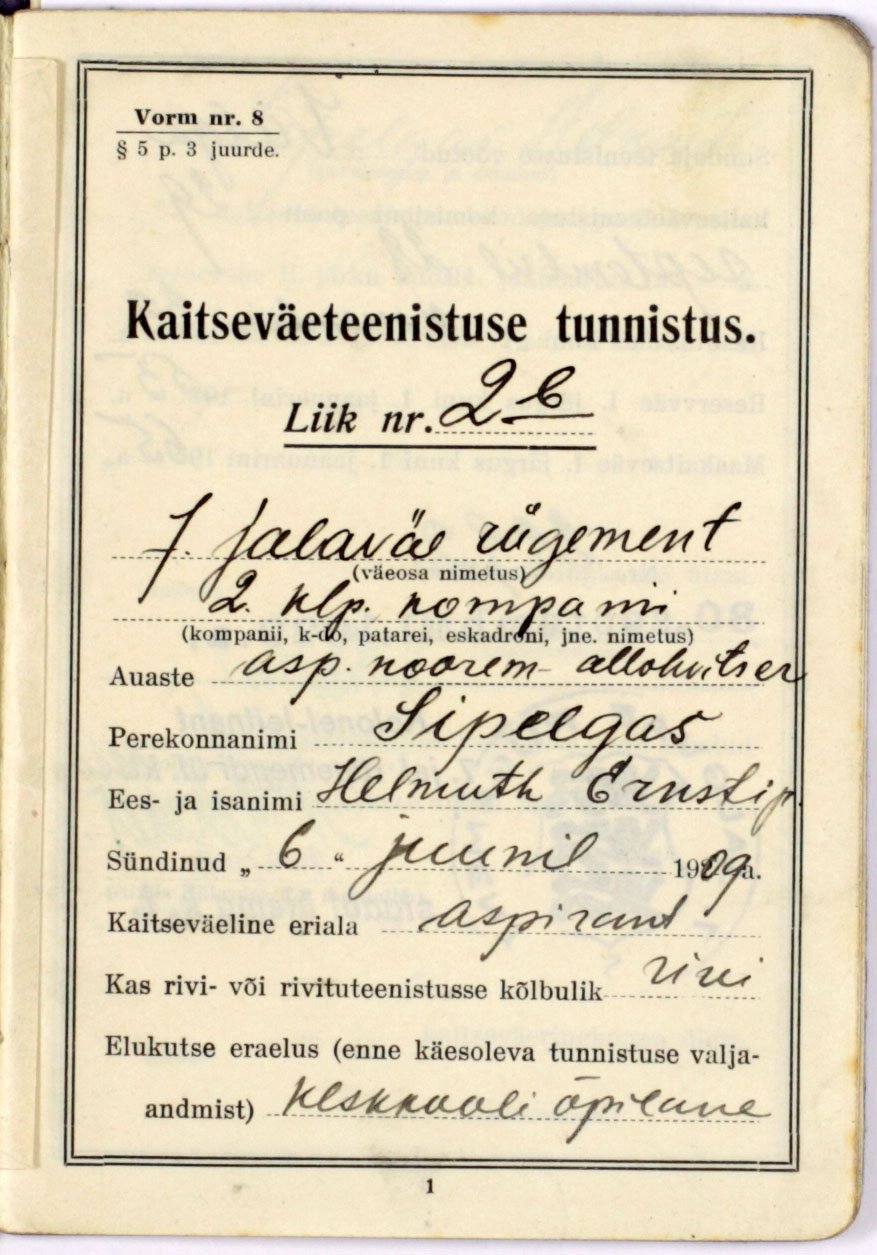 Vorm nr. 8
§ 5 p. 3 juurde.
Kaitseväeteenistuse tunnistus.
Liik nr. 2
7. jalaväe rügement
(väeosa nimetus)
2. klp. kompanii
(kompanii, k-do, patarei, eskadroni, jne. nimetus)
Auaste asp. noorem-allohvitser
Perekonnanimi Sipelgas
Ees- ja isanimi Helmuth Ernsti p.
Sündinud „ 6 “ juunil 1909 a.
Kaitseväeline eriala aspirant
Kas rivi- või rivituteenistusse kõlbulik rivi
Elukutse eraelus (enne käesoleva tunnistuse valja-
andmist) keskkooli õpilane
1